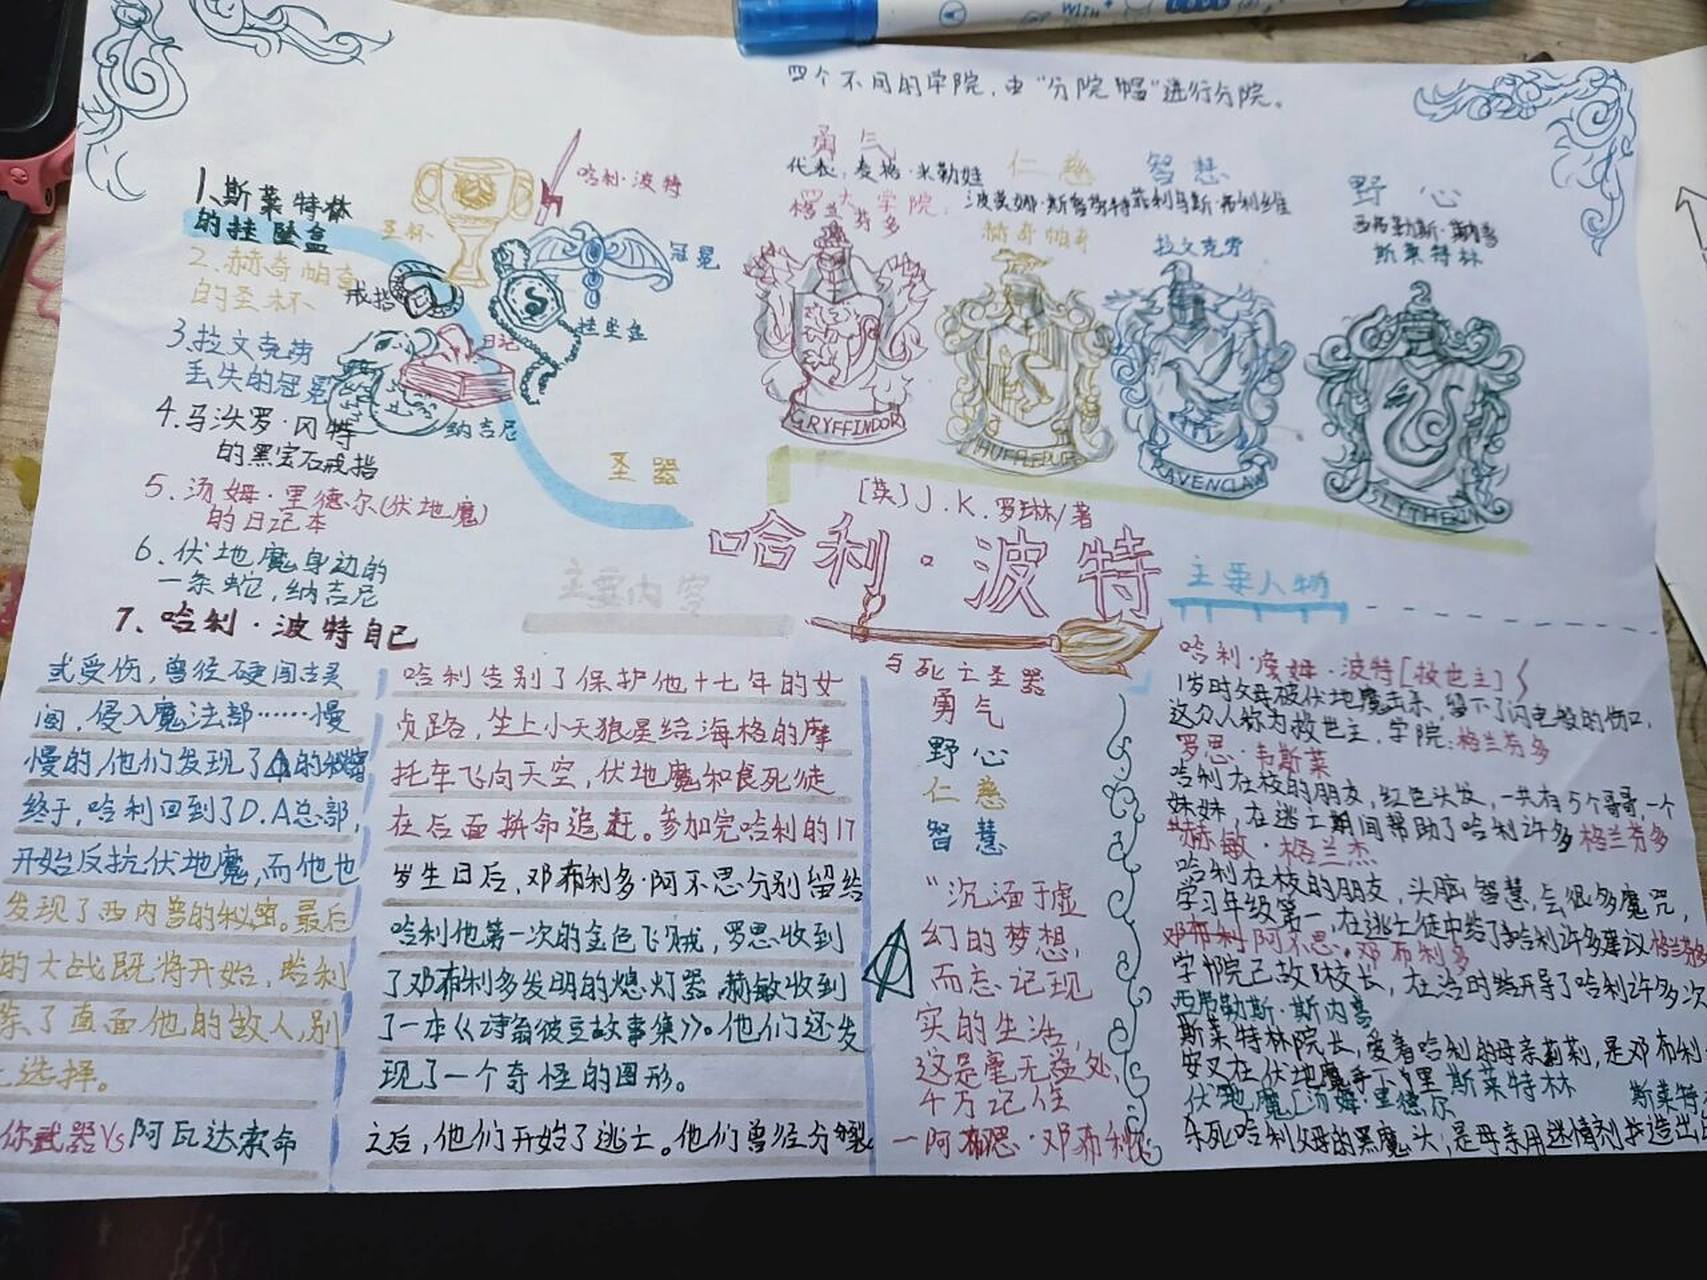 四个不同的学院，由“分院帽”进行分院。
勇气
代表：麦格·米勒娃
格兰芬多
学院：
仁慈
波莫娜·斯普劳特
赫奇帕奇
智慧
菲利乌斯·弗利维
拉文克劳
野心
西弗勒斯·斯内普
斯莱特林
GRYFFINDOR
HUFFLEPUFF
RAVENCLAW
SLYTHERIN
1、斯莱特林
的挂坠盒
2.赫奇帕奇
的圣杯
3.拉文克劳
丢失的冠冕
4.马沃罗·冈特
的黑宝石戒指
5.汤姆·里德尔(伏地魔)
的日记本
6.伏地魔身边的
一条蛇，纳吉尼
7、哈利·波特自己
圣杯
哈利·波特
冠冕
戒指
挂坠盒
日记
纳吉尼
圣器
[英]J.K.罗琳/著
哈利·波特
与死亡圣器
主要内容
主要人物
哈利告别了保护他十七年的女
贞路，坐上小天狼星给海格的摩
托车飞向天空，伏地魔和食死徒
在后面拼命追赶。参加完哈利的17
岁生日后，邓布利多·阿不思分别留给
哈利他第一次的金色飞贼，罗恩收到
了邓布利多发明的熄灯器，赫敏收到
了一本《诗翁彼豆故事集》。他们还发
现了一个奇怪的图形。
之后，他们开始了逃亡。他们曾经分裂
或受伤，曾经硬闯古灵
阁，侵入魔法部……慢
慢的，他们发现了的秘密
终于，哈利回到了D.A总部，
开始反抗伏地魔，而他也
发现了西内普的秘密。最后
的大战既将开始，哈利
除了直面他的敌人，别
无选择。
你武器Vs阿瓦达索命
勇气
野心
仁慈
智慧
“沉湎于虚
幻的梦想，
而忘记现
实的生活，
这是毫无益处，
千万记住
—阿不思·邓布利多
哈利·詹姆·波特[救世主]
1岁时父母被伏地魔击杀，留下了闪电般的伤口，
这人称为救世主，学院：格兰芬多
罗恩·韦斯莱
哈利在校的朋友，红色头发，一共有5个哥哥，一个
妹妹，在逃亡期间帮助了哈利许多 格兰芬多
赫敏·格兰杰
哈利在校的朋友，头脑智慧，会很多魔咒，
学习年级第一，在逃亡徒中给了哈利许多建议 格兰芬多
邓布利 阿不思·邓布利多
学院已故校长，在活时然开导了哈利许多次
西弗勒斯·斯内普
斯莱特林院长，爱着哈利的母亲莉莉，是邓布利
安叉在伏地魔手下 斯莱特林
伏地魔[汤姆·里德尔 斯莱特
杀死哈利父母的黑魔头，是母亲用迷情剂打造出